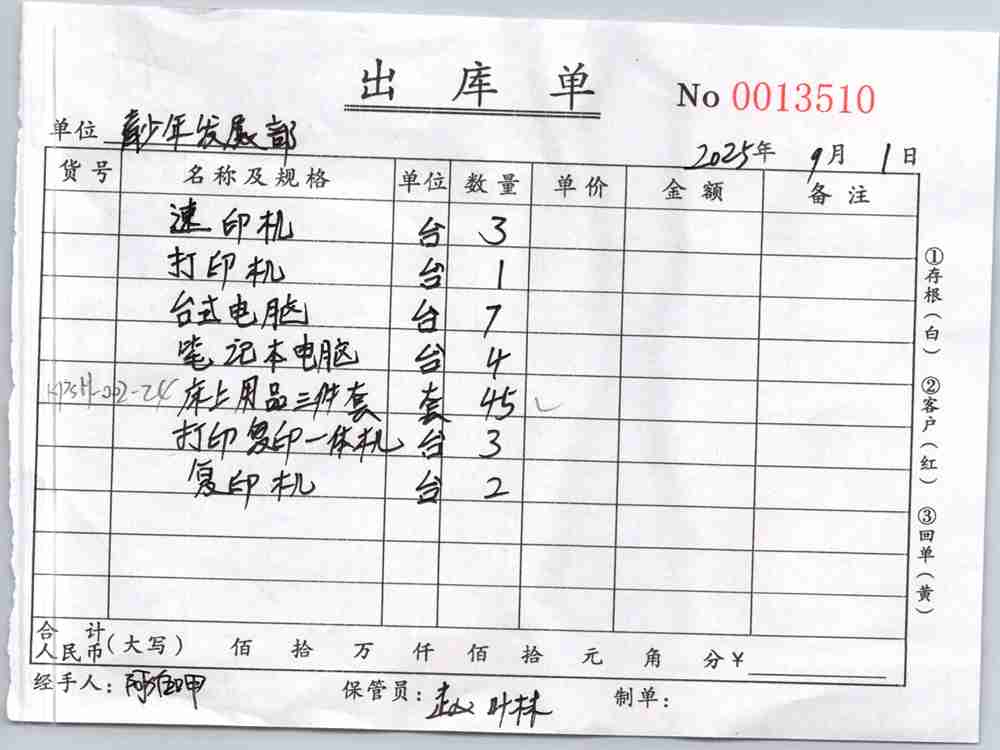 出库单
No 0013510
单位 青少年发展部
2025年 9月 1日
货号 名称及规格 单位 数量 单价 金额 备注
速印机 台 3
打印机 台 1
台式电脑 台 7
笔记本电脑 台 4
床上用品三件套 套 45 ✓
打印复印一体机 台 3
复印机 台 2
合计
人民币(大写) 佰 拾 万 仟 佰 拾 元 角 分¥
经手人: 保管员: 赵叶林 制单:
①存根(白) ②客户(红) ③回单(黄)